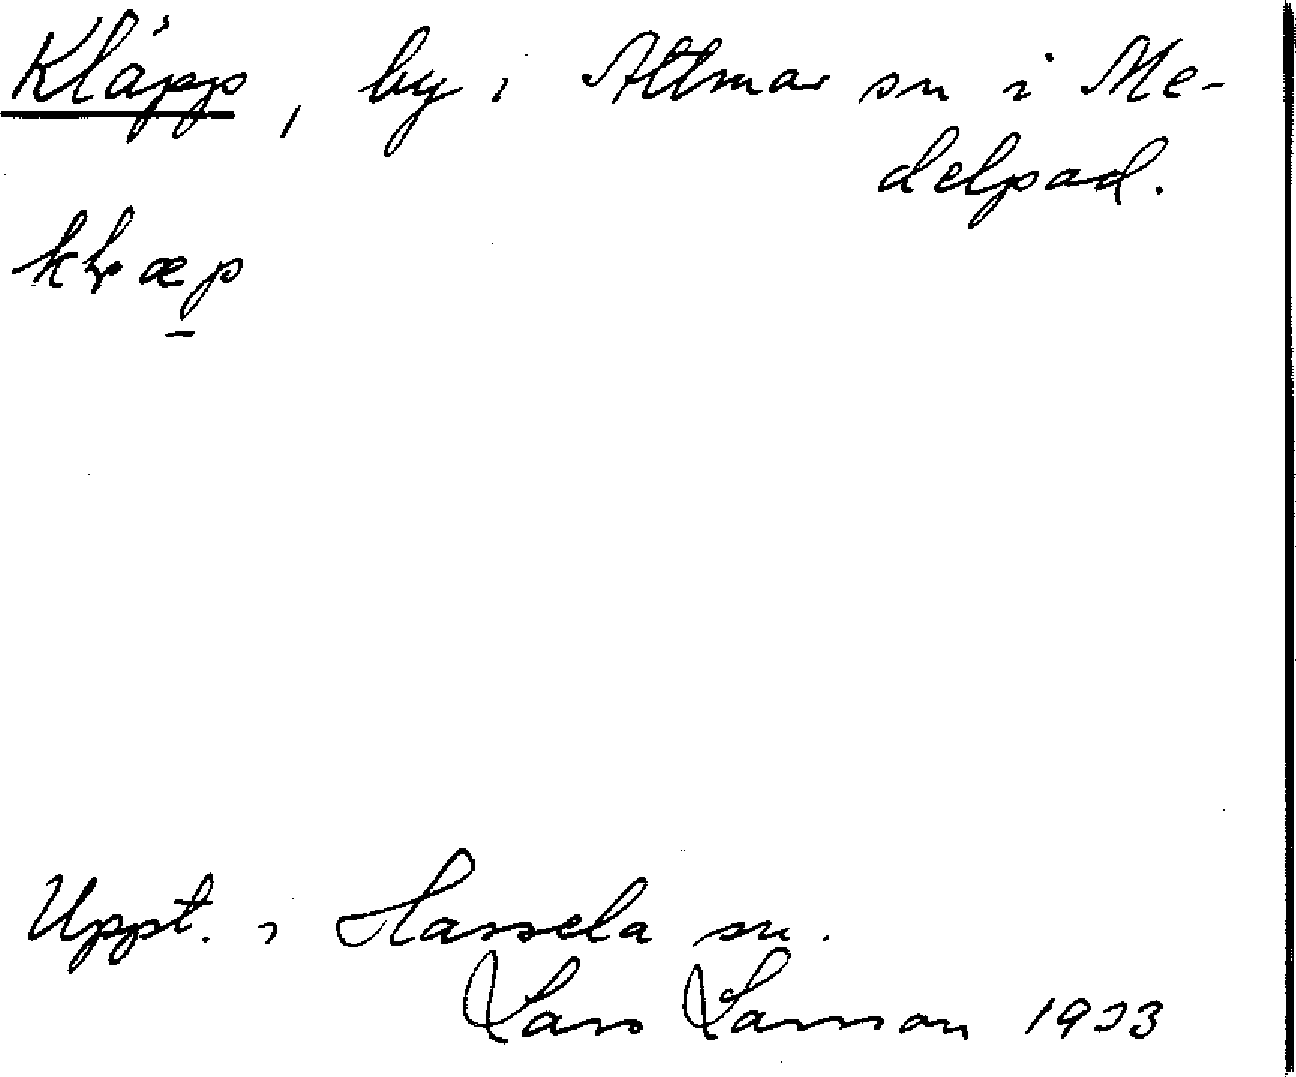 Kläpp, by i Attmar sn i Me-
delpad.
kḷæp
Uppt. i Hassela sn.
Lars Larsson 1933